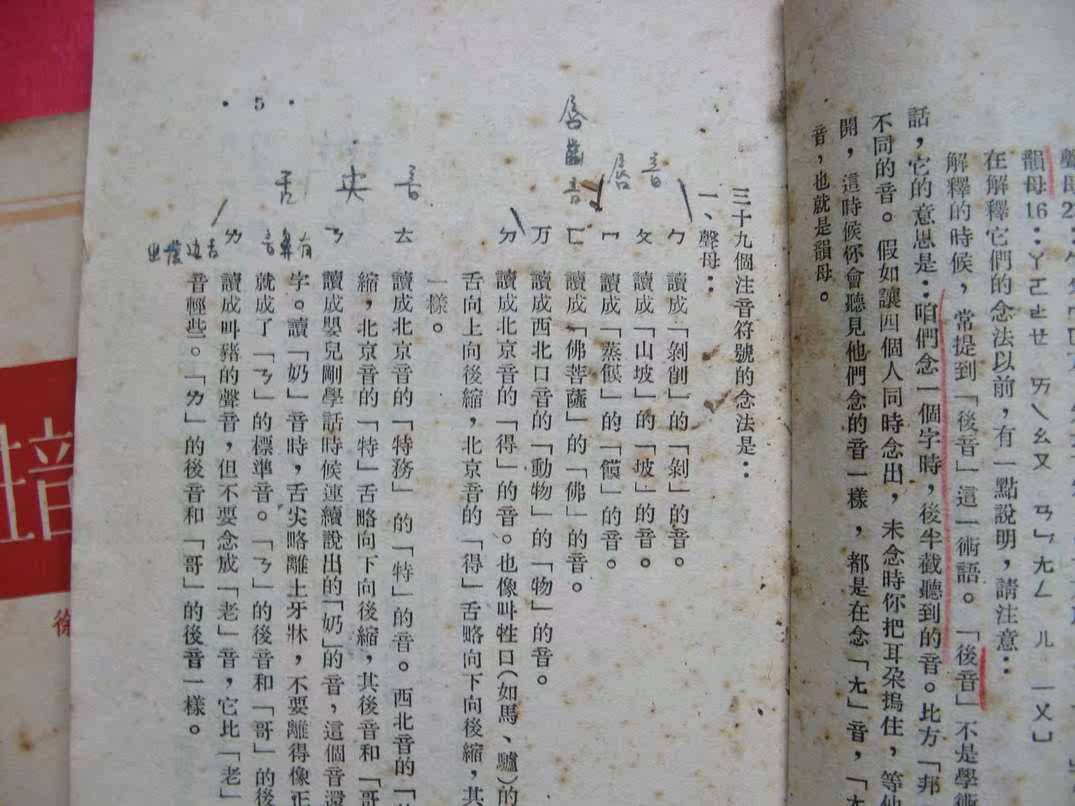 韻母16：ㄚㄛㄜㄝ ㄞㄟㄠㄡ ㄢㄣㄤㄥ ㄦ ㄧㄨㄩ
在解釋它們的念法以前，有一點說明，請注意：
解釋的時候，常提到「後音」這一術語。「後音」不是學術
話，它的意思是：咱們念一個字時，後半截聽到的音。比方「邦
不同的音。假如讓四個人同時念出，未念時你把耳朶摀住，等他
開，這時候你會聽見他們念的音一樣，都是在念「ㄤ」音，「ㄤ
音，也就是韻母。
三十九個注音符號的念法是：
一、聲母：
唇音
ㄅ 讀成「剝削」的「剝」的音。
ㄆ 讀成「山坡」的「坡」的音。
ㄇ 讀成「蒸饃」的「饃」的音。
唇齒音
ㄈ 讀成「佛菩薩」的「佛」的音。
万 讀成西北口音的「動物」的「物」的音。
舌尖音
ㄉ 讀成北京音的「得」的音。也像叫牲口(如馬、驢)的
舌向上向後縮，北京音的「得」舌略向下向後縮，其
一樣。
ㄊ 讀成北京音的「特務」的「特」的音。西北音的「
縮，北京音的「特」舌略向下向後縮，其後音和「哥
ㄋ 讀成嬰兒剛學話時候連續說出的「奶」的音，這個音還
字。讀「奶」音時，舌尖略離上牙牀，不要離得像正
就成了「ㄋ」的標準音。「ㄋ」的後音和「哥」的後
有鼻音
ㄌ 讀成叫豬的聲音，但不要念成「老」音，它比「老」
音輕些。「ㄌ」的後音和「哥」的後音一樣。
舌边發出
• 5 •
音
徐